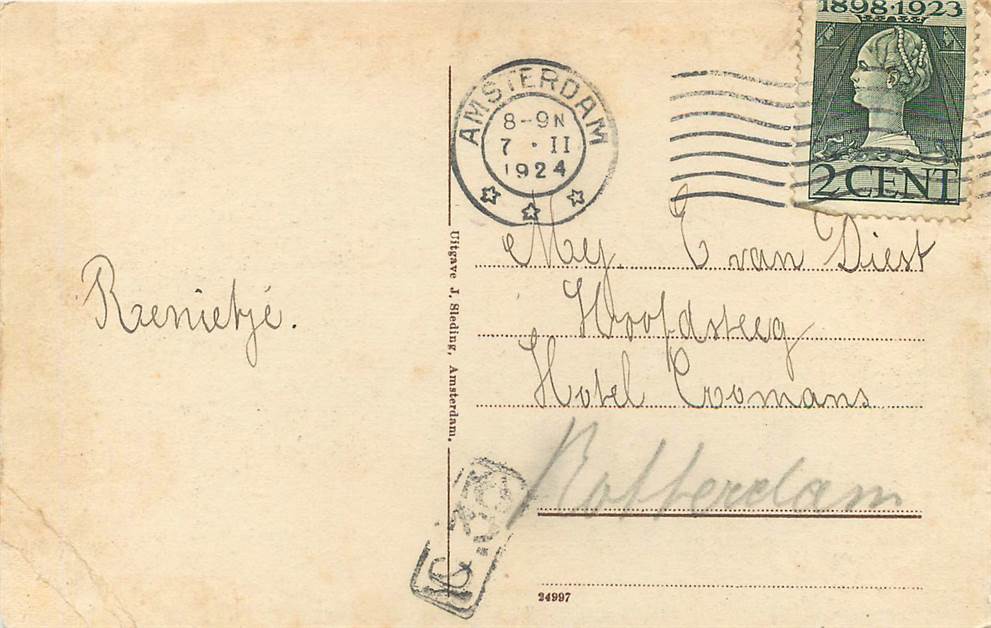 1898·1923
2 CENT
AMSTERDAM
8-9N
7 · II
1924
Uitgave J. Sleding, Amsterdam.
Mej. C van Diest
Hoofdsteeg
Hotel Coomans
Rotterdam
Rzenietje.
24997